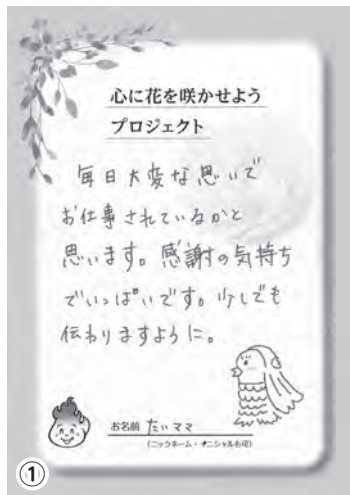 心に花を咲かせよう
プロジェクト
毎日大変な思いで
お仕事されているかと
思います。感謝の気持ち
でいっぱいです。少しでも
伝わりますように。
お名前 たいママ
(ニックネーム・イニシャルも可)
①